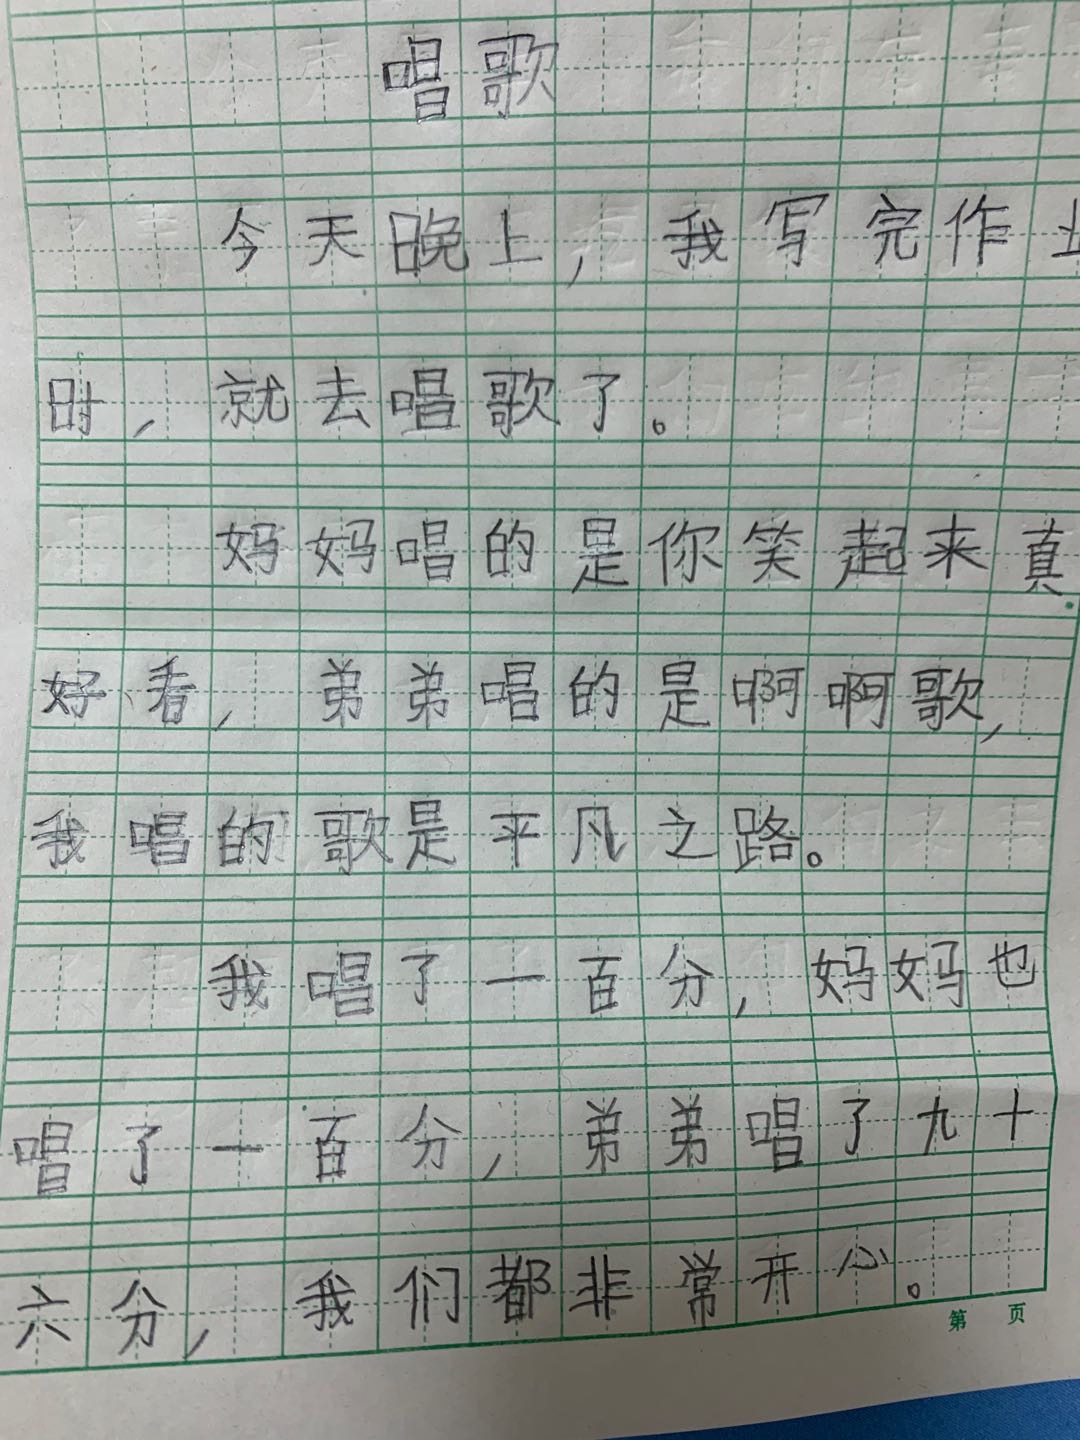 唱歌
今天晚上，我写完作业
时，就去唱歌了。
妈妈唱的是你笑起来真
好看，弟弟唱的是啊啊歌，
我唱的歌是平凡之路。
我唱了一百分，妈妈也
唱了一百分，弟弟唱了九十
六分，我们都非常开心。
第 页